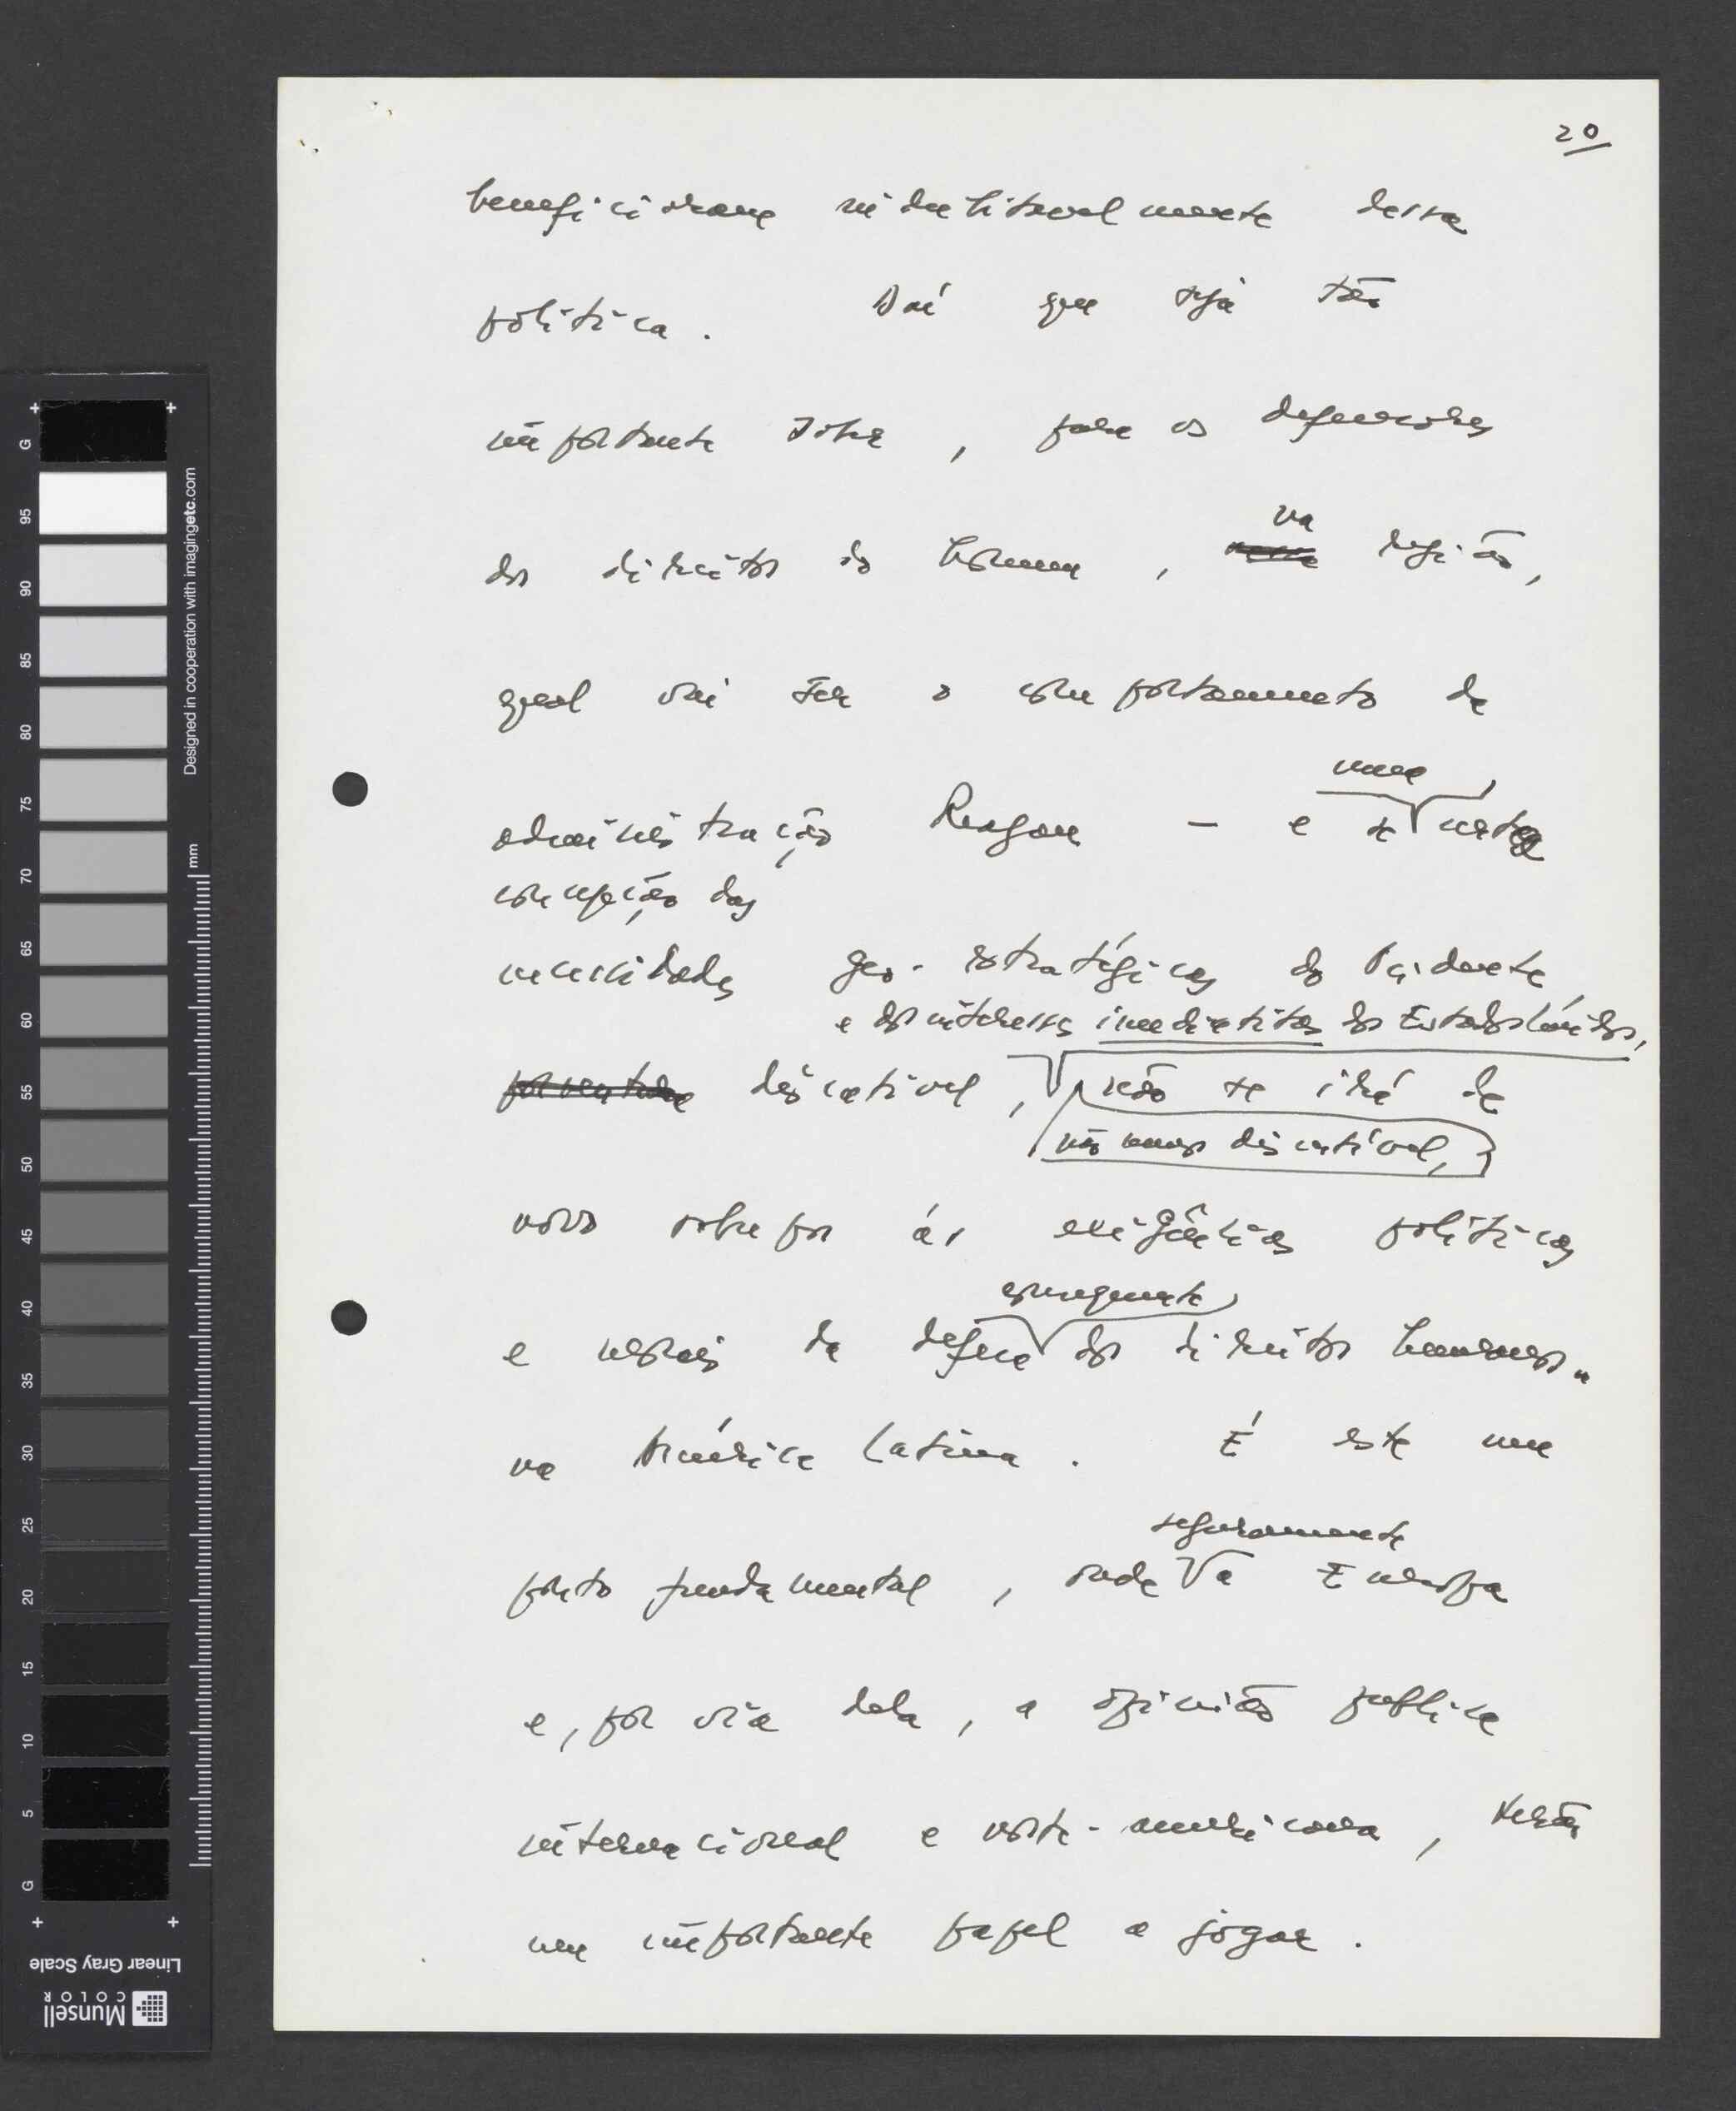 20
beneficiaram indubitavelmente dessa
política. Daí que seja tão
importante saber, para os defensores
dos direitos do homem, na região,
qual vai ser o comportamento da
administração Reagan – e se uma certa
concepção das
necessidades geo-estratégicas do Ocidente,
e dos interesses imediatistas dos Estados Unidos,
discutível, não se irá de
não menos discutível,
novo sobrepor às exigências políticas
consequente
e morais da defesa dos direitos humanos
na América Latina. É este um
seguramente
ponto fundamental, onde a Europa
e, por via dela, a opinião pública
internacional e norte-americana, terão
um importante papel a jogar.
G
95
90
85
80
75
70
65
60
55
50
45
40
35
30
25
20
15
10
5
G
mm
Designed in cooperation with imagingetc.com
Linear Gray Scale
Munsell
COLOR